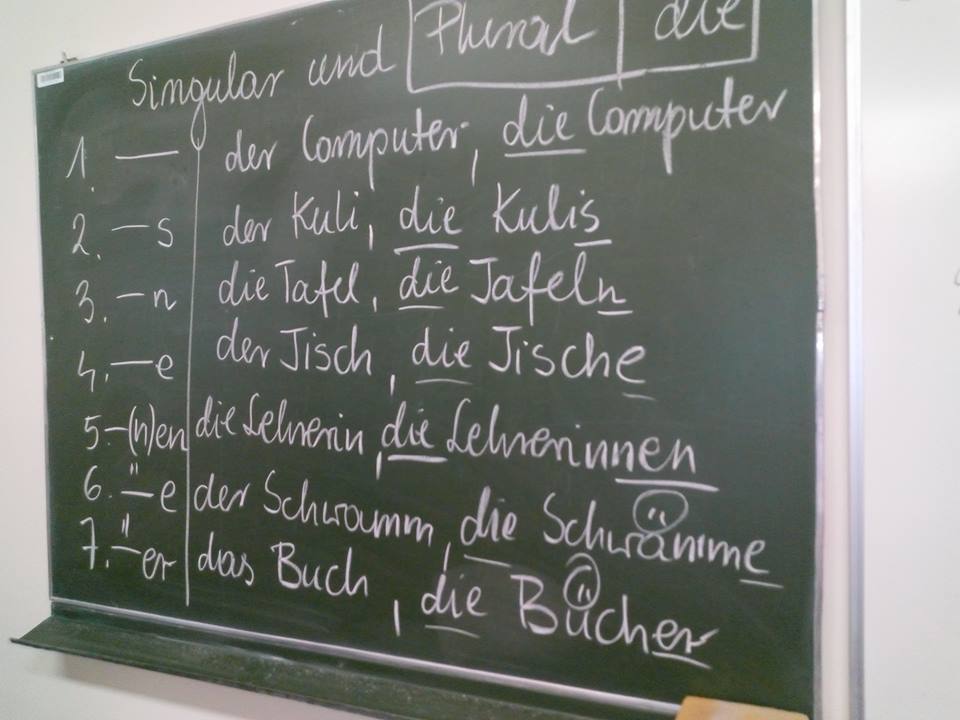 Singular und Plural die
1. — der Computer, die Computer
2. —s der Kuli, die Kulis
3. —n die Tafel, die Tafeln
4. —e der Tisch, die Tische
5. —(n)en die Lehrerin, die Lehrerinnen
6. ¨—e der Schwamm, die Schwämme
7. ¨—er das Buch, die Bücher